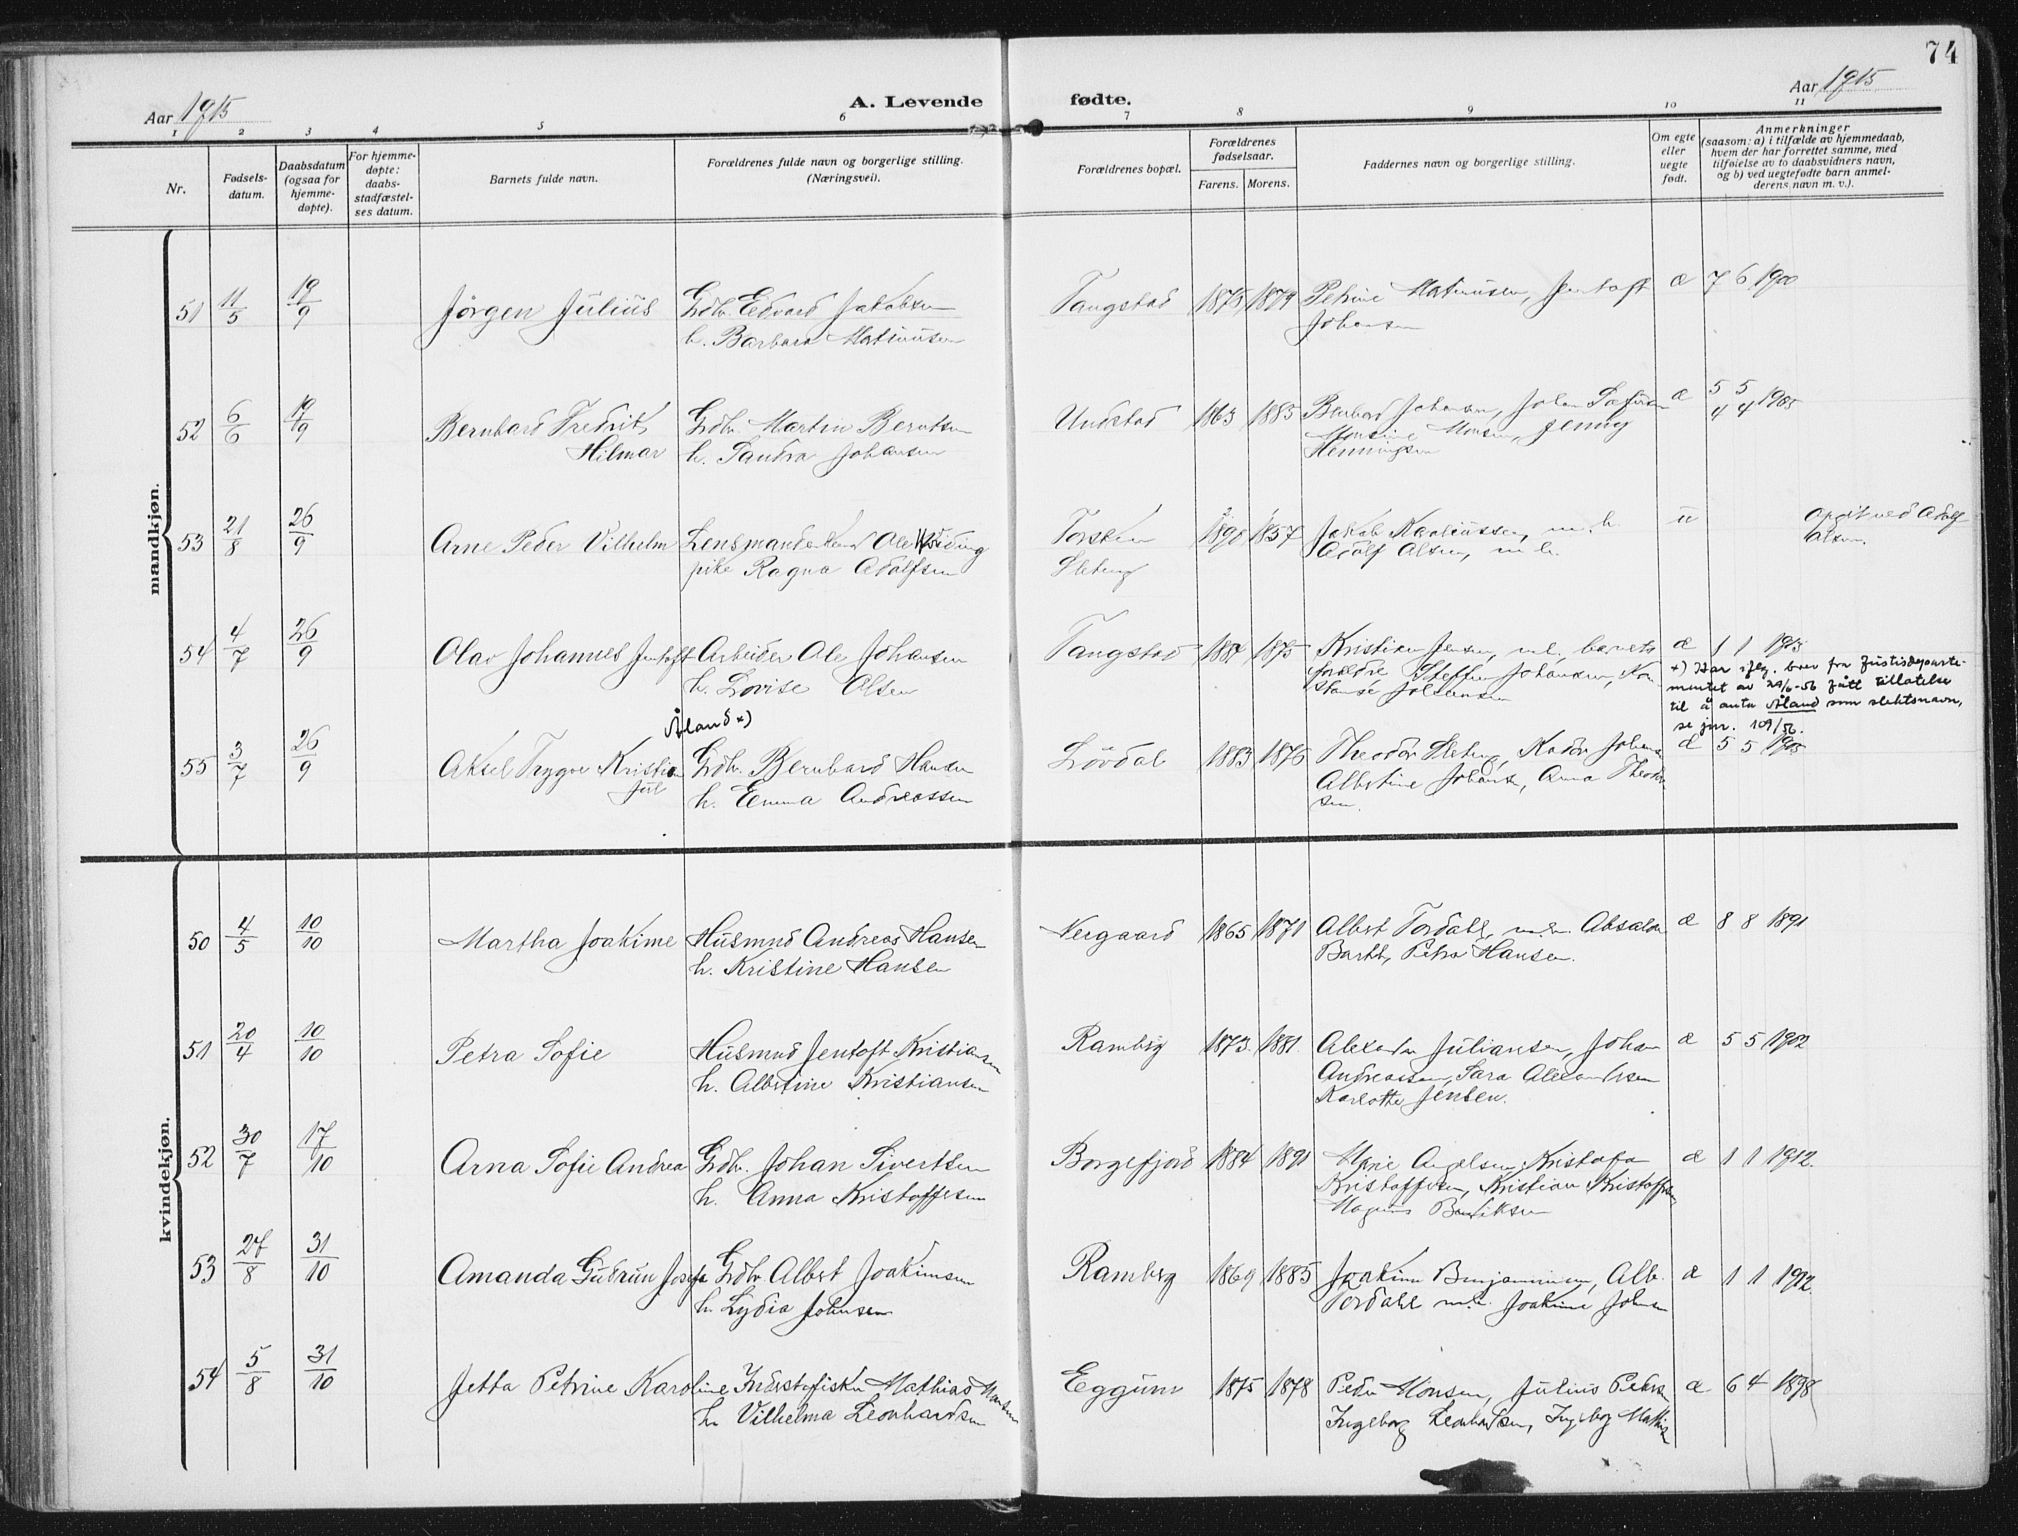 74
Aar 1915
A. Levende fødte.
Aar 1915
1 2 3 4 5 6 7 8 9 10 11
Nr.
Fødsels-
datum.
Daabsdatum
(ogsaa for
hjemme-
døpte).
For hjemme-
døpte:
daabs-
stadfæstel-
ses datum.
Barnets fulde navn.
Forældrenes fulde navn og borgerlige stilling.
(Næringsvei).
Forældrenes bopæl.
Forældrenes
fødselsaar.
Farens. Morens.
Faddernes navn og borgerlige stilling.
Om egte
eller
uegte
født.
Anmerkninger
(saasom: a) i tilfælde av hjemmedaab,
hvem der har forrettet samme, med
tilføielse av to daabsvidners navn,
og b) ved uegtefødte barn anmel-
derens navn m. v.).
mandkjøn.
51 11/5 19/9 Jørgen Julius Grdbr. Edvard Jakobsen Tangstad 1875 1879 Petrine Matiusen, Jentoft æ 7 6 1900
h. Barbara Matiusen Johansen
52 6/6 19/9 Bernhard Fredrik Grdbr. Martin Berntsen Undstad 1863 1883 Johansen, æ 5 5 1905
Hilmar h. Sandra Johansen Monsine Monsen, Jenny 4 4
Henningsen
53 21/8 26/9 Arne Peder Vilhelm Lensmand Ole Torsken 1890 1857 Jakob m. h. u Opgit ved Adolf
pike Ragna Adolfsen Sletteng Adolf Olsen, m. h. Olsen.
54 4/7 26/9 Olav Johannes Jentoft Arbeider Ole Johansen Tangstad 1875 Kristian Jensen, barnets æ 1 1 1913
h. Lovise Olsen forældre Steffen Johansen, Kon-
stanse Johansen
x) Har iflg. brev fra Justisdeparte-
mentet av 29/6-56 fått tillatelse
til å anta Åland som slektsnavn,
se jnr. 109/56.
Åland x)
55 3/7 26/9 Aksel Trygve Kristian Grdbr. Bernhard Hansen Lövdal 1883 1876 Theodor Sletteng, Johansen æ 5 5 1905
Jul h. Emma Andreassen Albertine Johansen, Anna Theodor-
sen.
kvindekjøn.
50 4/5 10/10 Martha Joakime Husmnd Andreas Hansen Nergaard 1865 1871 Albert Tordahl, m. h. Absalon æ 8 8 1891
h. Kristine Hansen Petra Hansen.
51 20/4 10/10 Petra Sofie Husmnd Jentoft Kristiansen Ramberg 1873 1881 Alexander Juliansen, Johan æ 5 5 1902
h. Albertine Kristiansen Andreassen, Sara Alexandersen
Karlotte Jensen.
52 30/7 17/10 Arna Sofie Andrea Grdbr. Johan Sivertsen Borgefjord 1884 1891 Marie Kristofa æ 1 1 1912.
h. Anna Kristoffersen Kristoffersen, Kristian Kristoffersen
Magnus
53 27/8 31/10 Amanda Gudrun Josefa Grdbr Albert Joakimsen Ramberg 1869 1885 Joakim Benjaminsen, Alb. æ 1 1 1912.
h. Lydia Johnsen Tordahl m.h. Joakime
54 5/8 31/10 Jetta Petrine Karoline Inderstfisker Mathias Monsen Eggum 1875 1878 Peder Monsen, Julius Peders. æ 6 4 1898
h. Vilhelma Leonhardsen Ingeborg Leonhardsen, Ingeborg